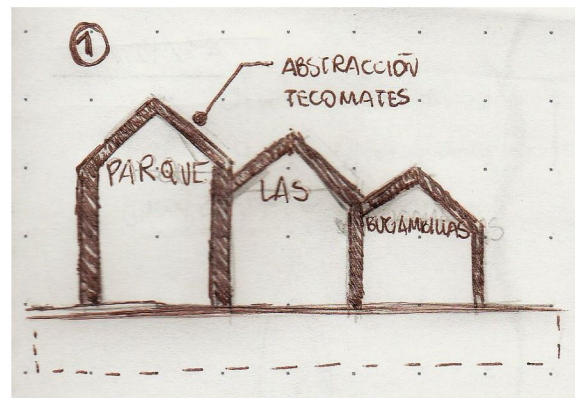 1
ABSTRACCIÓN
TECOMATES.
PARQUE
LAS
BUGAMBILIAS